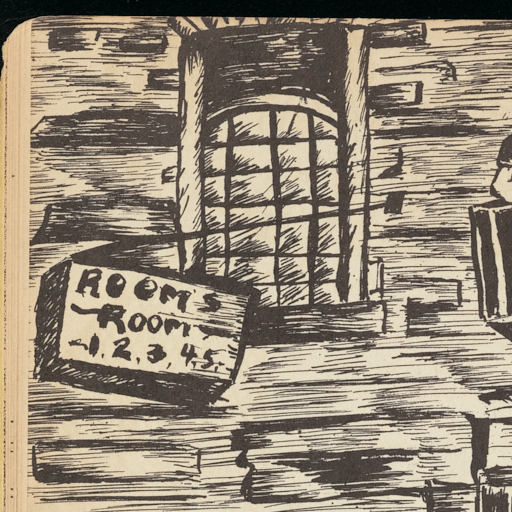 ROOMS
-ROOM-
-1, 2, 3, 4, 5,